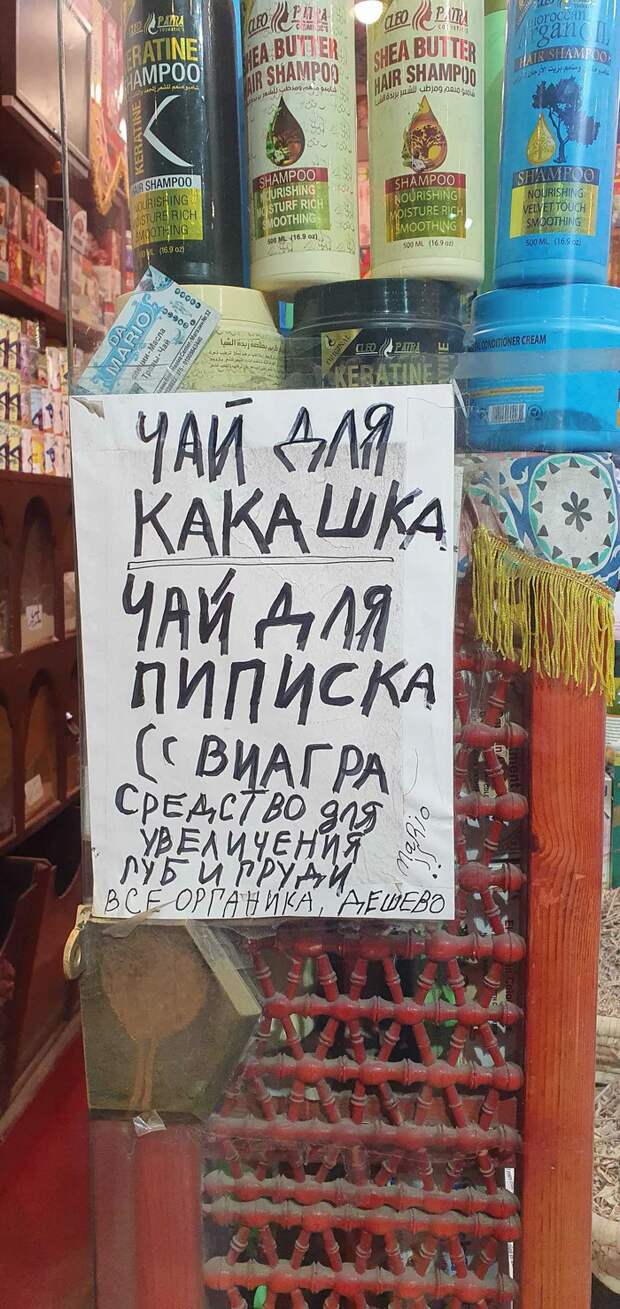 CLEO PATRA
KERATINE
SHAMPOO
KERATINE
HAIR SHAMPOO
NOURISHING
MOISTURE RICH
SMOOTHING
500 ML (16.9 oz)
CLEO PATRA
SHEA BUTTER
HAIR SHAMPOO
SHAMPOO
NOURISHING
MOISTURE RICH
SMOOTHING
500 ML (16.9 oz)
CLEO PATRA
SHEA BUTTER
HAIR SHAMPOO
شامبو منعم ومرطب للشعر بزبدة الشيا
SHAMPOO
NOURISHING
MOISTURE RICH
SMOOTHING
500 ML (16.9 oz)
moroccan
argan oil
HAIR SHAMPOO
SHAMPOO
NOURISHING
VELVET TOUCH
SMOOTHING
500 ML (16.9 oz)
DA
MARIO
Масла
Травы-Чай
CLEO PATRA
KERATINE
CONDITIONER CREAM
ЧАЙ ДЛЯ
КАКАШКА
ЧАЙ ДЛЯ
ПИПИСКА
(( ВИАГРА
СРЕДСТВО для
УВЕЛИЧЕНИЯ
ГУБ И ГРУДИ
ВСЕ ОРГАНИКА, ДЕШЕВО
MaRio